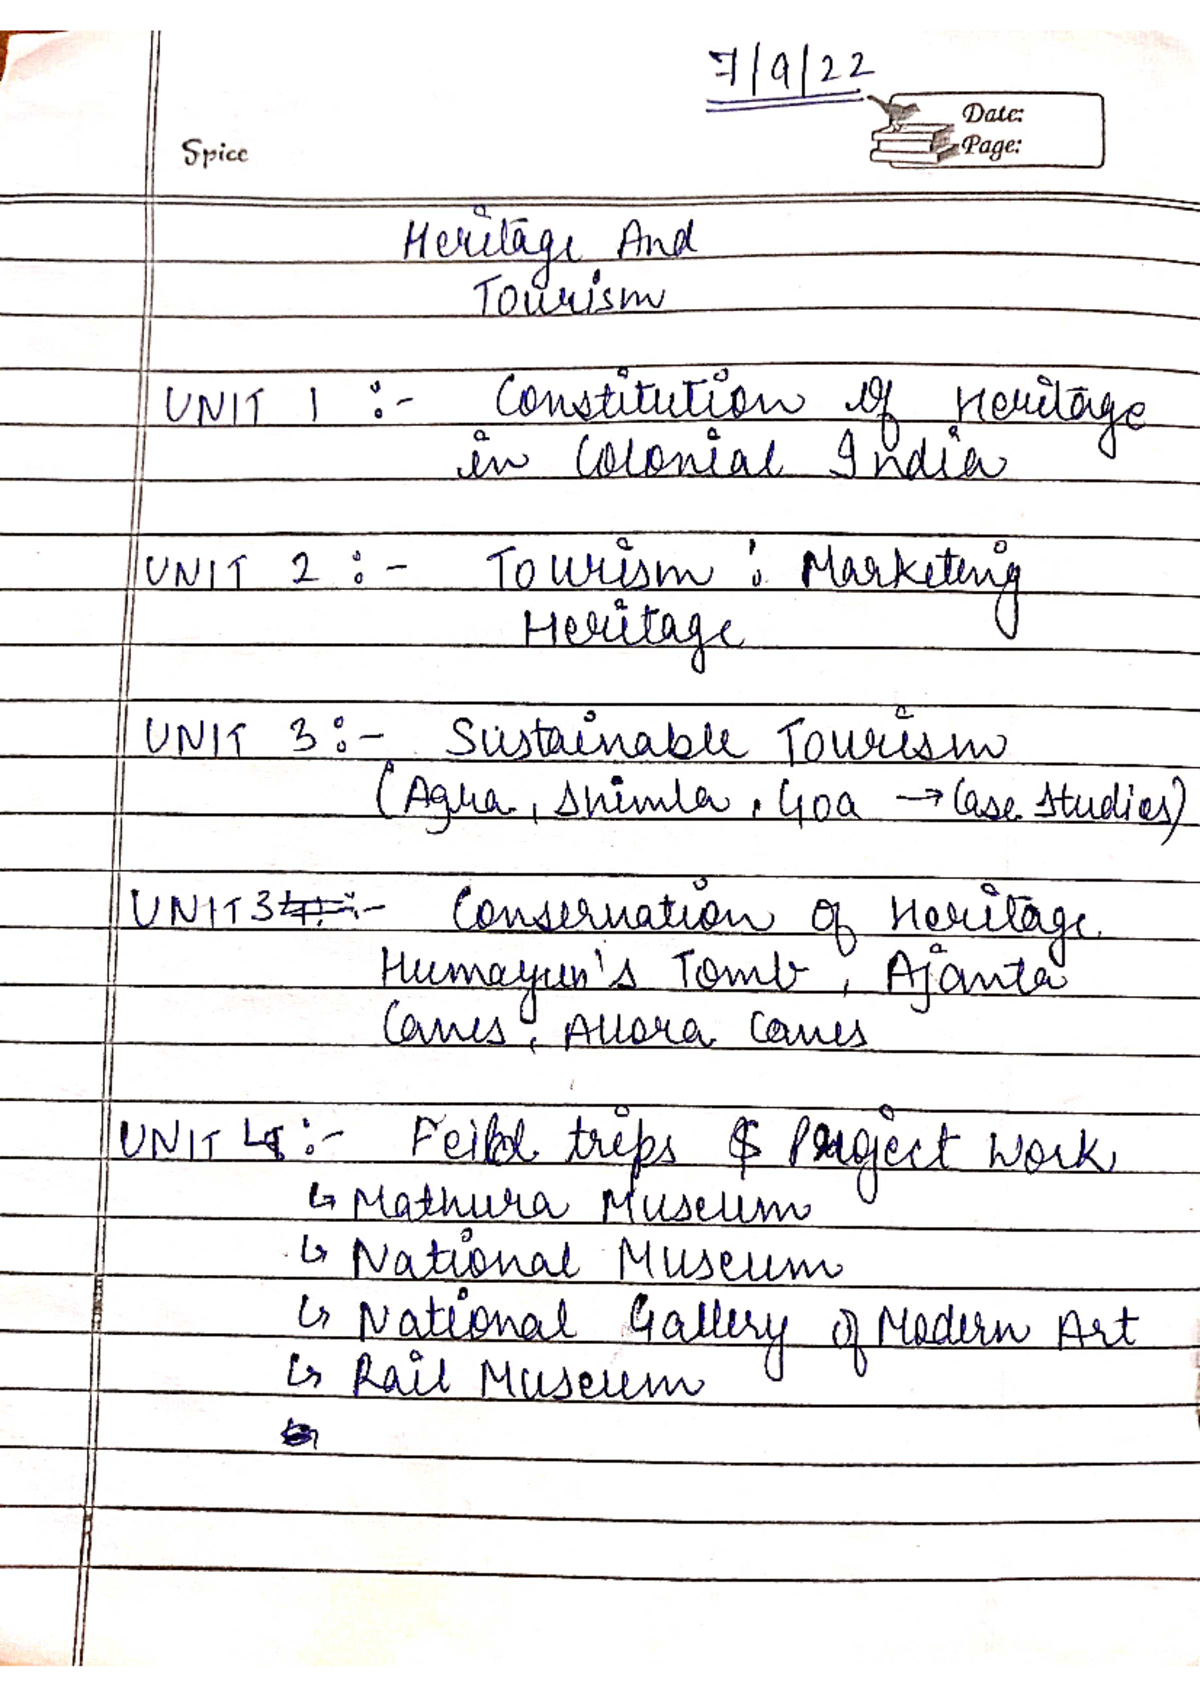 7/9/22
Date:
Page:
Spice
Heritage And
Tourism
UNIT 1 :- Constitution of Heritage
in Colonial India
UNIT 2 :- Tourism : Marketing
Heritage
UNIT 3 :- Sustainable Tourism
(Agra, Shimla, Goa → Case Studies)
UNIT 3 :- Conservation of Heritage
Humayun's Tomb, Ajanta
Caves, Allora Caves
UNIT 4 :- Feild trips & Project Work
↳ Mathura Museum
↳ National Museum
↳ National Gallery of Modern Art
↳ Rail Museum